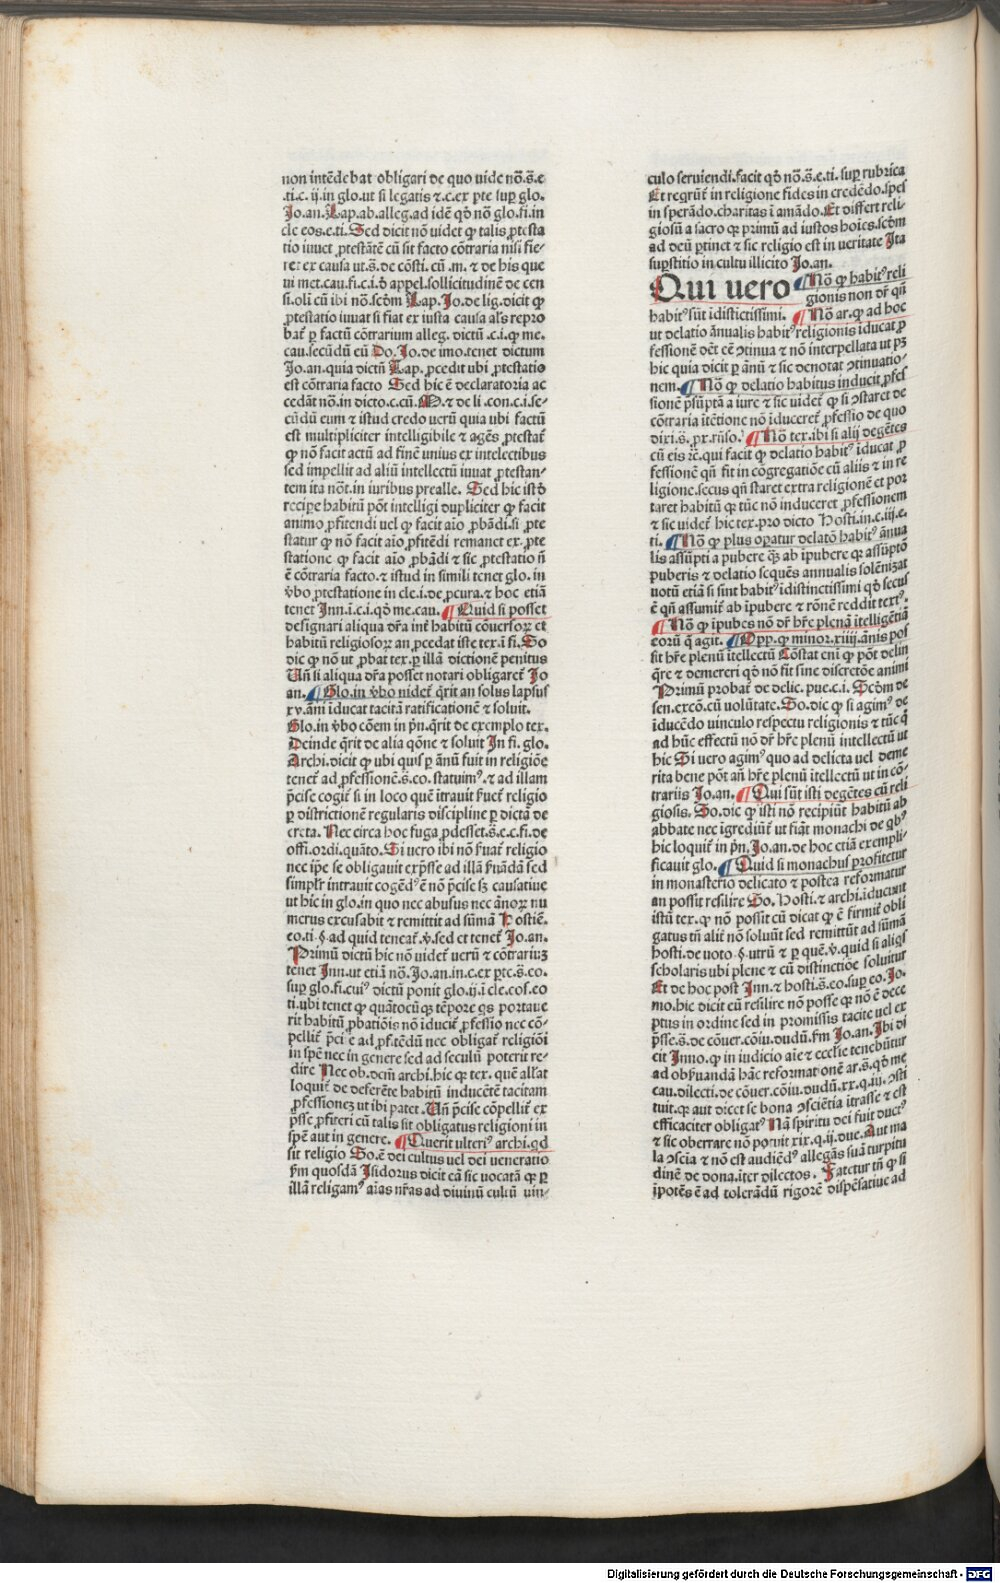 non intēdebat obligari de quo vide nō.s̄.e.
ti.c.ij.in glo.ut si legatis ⁊.c.ex pte sup glo.
Jo.an. Lap.ab.alleg.ad idē qđ nō glo.fi.in
cle eos.e.ti. Sed dicit nō videt̄ ꝙ talis ꝓtesta
tio iuuet ꝓtestātē cū sit facto cōtraria nisi fie⸗
ret ex causa ut.s̄.de cōsti.cū .m. ⁊ de his que
vi met.cau.fi.c.i.đ appel.sollicitudinē de cen
si.oli cū ibi nō.scđm Lap. Jo.de lig.dicit ꝙ
ꝓtestatio iuuat si fiat ex iusta causa al's repro
bat̄ ꝑ factū cōtrarium alleg. dictū .c.i.ꝙ me.
cau.secūdū eū Do. Jo.de imo.tenet dictum
Jo.an.quia dictū Lap. ꝓcedit ubi ꝓtestatio
est cōtraria facto Sed hic ē declaratoria ac
cedāt nō.in dicto.c.cū. M. ⁊ de li .con.c.i.se⸗
cūdū eum ⁊ istud credo verū quia ubi factū
est multipliciter intelligibile ⁊ agēs ꝓtestat̄
ꝙ nō facit actū ad finē unius ex intelectibus
sed impellit ad aliū intellectū iuuat ꝓtestan⸗
tem ita nōt.in iuribus prealle. Sed hic istđ
recipe habitū pōt intelligi dupliciter ꝙ facit
animo ꝓfitendi vel ꝙ facit aīo ꝓbādi.si ꝓte
statur ꝙ nō facit aīo ꝓfitēdi remanet ex.ꝓte
statione ꝙ facit aīo ꝓbādi ⁊ sic ꝓtestatio n̄
ē cōtraria facto.⁊ istud in simili tenet glo.in
v̄bo ꝓtestatione in cle.i.de ꝓcura.⁊ hoc etiā
tenet Inn.ī.c.i.qđ me.cau. ¶ Quid si posset
designari aliqua dr̄a int̄ habitū cōuersoꝝ et
habitū religiosoꝝ an ꝓcedat iste tex.ī fi. So
dic ꝙ nō ut ꝓbat tex.ꝑ illā dictionē penitus
Un̄ si aliqua dr̄a posset notari obligaret̄ Jo
an. ¶ Glo.in v̄bo videt̄ q̄rit an solus lapsus
xv.āni īducat tacitā ratificationē ⁊ soluit.
Glo.in v̄bo cōem in pn̄.q̄rit de exemplo tex.
Deinde q̄rit de alia qōne ⁊ soluit In fi. glo.
Archi.dicit ꝙ ubi quis ꝑ ānū fuit in religiōe
tenet̄ ad ꝓfessionē.s̄.co.statuim⁹.⁊ ad illam
p̄cise cogit̄ si in loco quē ītrauit s̄uet̄ religio
ꝑ districtionē regularis discipline ꝑ dictā de
creta. Nec circa hoc fuga ꝓdesset.s̄.e.c.fi.de
offi.ordi.quāto. Si vero ibi nō s̄uat̄ religio
nec ip̄e se obligauit exp̄sse ad illā s̄uādā sed
simpl'r intrauit cogēd⁹ ē nō p̄cise sꝫ causatiue
ut hic in glo.in quo nec abusus nec ānoꝝ nu
merus excusabit ⁊ remittit ad sūmā Hostiē.
eo.ti.§.ad quid teneat̄.v̄.sed et tenet̄ Jo.an.
Primū dictū hic nō videt̄ verū ⁊ cōtrariuꝫ
tenet Inn.ut etiā nō. Jo.an.in.c.ex ꝑte.s̄.co.
sup glo.fi.cui⁹ dictū ponit glo.ij.ī cle.eos.eo
ti.ubi tenet ꝙ quātocūqꝫ tēpore qs portaue
rit habitū ꝓbatiōis nō īducit̄ ꝓfessio nec cō⸗
pellit̄ p̄ci e ad ꝓf.tēdū nec obligat̄ religiōi
in spē nec in genere sed ad seculū poterit re⸗
dire Nec ob.dcm̄ archi.hic ꝙ tex. quē all'at
loquit̄ de deferēte habitū inducētē tacitam
ꝓfessionez ut ibi patet. Un̄ p̄cise cōpellit̄ ex
p̄sse ꝓfiteri cū talis sit obligatus religioni in
spē aut in genere. ¶ Querit ulteri⁹ archi.qd
sit religio So.ē dei cultus vel dei veneratio
s̄m quosdā Isidorus dicit eā sic vocatā ꝙ ꝑ
illā religam⁹ aīas nr̄as ad diuinū cultū vin⸗
culo seruiendi.facit qđ nō.s̄.e.ti.sup rubrica
Et regrūt̄ in religione fides in credēdo.spes
in sperādo.charitas ī amādo. Et differt reli⸗
giosū a sacro ꝙ primū ad iustos hoīes.scđm
ad deū ꝑtinet ⁊ sic religio est in veritate Ita
suꝑstitio in cultu illicito Jo.an.
Qui vero ¶ Nō ꝙ habit⁹ reli
gionis non dr̄ qn̄
habit⁹ sūt īdistictissimi. ¶ Nō ar.ꝙ ad hoc
ut delatio ānualis habit⁹ religionis īducat ꝓ
fessionē dēt eē ↄtinua ⁊ nō interpellata ut pꝫ
hic quia dicit ꝑ ānū ⁊ sic denotat ↄtinuatio⸗
nem. ¶ Nō ꝙ delatio habitus inducit ꝓfes
sionē p̄sūptā a iure ⁊ sic videt̄ ꝙ si ↄstaret de
cōtraria ītētione nō īduceret̄ ꝓfessio de quo
dixi.s̄.px.rn̄so. ¶ Nō tex.ibi si alij degētes
cū eis ⁊c̄.qui facit ꝙ delatio habit⁹ īducat ꝓ
fessionē qn̄ fit in cōgregatiōe cū aliis ⁊ in re
ligione.secus qn̄ staret extra religionē et por
taret habitū ꝙ tūc nō induceret ꝓfessionem
⁊ sic videt̄ hic tex.pro dicto Hosti.in.c.iij.e.
ti. ¶ Nō ꝙ plus oꝑatur delatō habit⁹ ānua
lis assūpti a pubere q̄ꝫ ab īpubere qꝛ assūptō
puberis ⁊ delatio sequēs annualis solēnizat
votū etiā si sint habit⁹ īdistinctissimi qđ secus
ē qn̄ assumit̄ ab īpubere ⁊ rōnē reddit text⁹.
¶ Nō ꝙ īpubes nō dr̄ hr̄e plenā ītelligētiā
eorū q̄ agit. ¶ Opp.ꝙ minor.xiiij.ānis pos
sit hr̄e plenū ītellectū Cōstat enī ꝙ pōt delin
q̄re ⁊ demereri qđ nō fit sine discretōe animi
Primū probat̄ de delic. pue.c.i. Scđm de
sen.excō.cū volūtate. So.dic ꝙ si agim⁹ de
īducēdo vinculo respectu religionis ⁊ tūc q̄
ad hūc effectū nō dr̄ hr̄e plenū intellectū ut
hic Si vero agim⁹ quo ad delicta vel deme
rita bene pōt an̄ hr̄e plenū ītellectū ut in cō⸗
trariis Jo.an. ¶ Qui sūt isti degētes cū reli
giosis. So.dic ꝙ isti nō recipiūt habitū ab
abbate nec īgrediūt̄ ut fiāt monachi de qb⁹
hic loquit̄ in pn̄. Jo.an.de hoc etiā exempli⸗
ficauit glo. ¶ Quid si monachus profitetur
in monasterio delicato ⁊ postea reformatur
an possit resilire So. Hosti.⁊ archi.īducunt
istū tex.ꝙ nō possit cū dicat ꝙ ē firmit̄ obli
gatus tn̄ alit̄ nō soluūt sed remittūt ad sūmā
hosti.de voto.§.utrū ⁊ ꝑ quē.v̄.quid si aliqs
scholaris ubi plene ⁊ cū distinctiōe soluitur
Et de hoc post Inn.⁊ hosti.s̄.co.sup eo. Jo.
mo.hic dicit eū resilire nō posse ꝙ nō ē dece
ptus in ordine sed in promissis tacite vel ex
p̄sse.s̄.de cōuer.cōiu.dudū.s̄m Jo.an. Ibi di
cit Inno.ꝙ in iudicio aīe ⁊ ecclīe tenebūtur
ad obs̄uandā hāc reformationē ar.s̄.qđ me
cau.dilecti.de cōuer.cōiu.dudū.xx.q.iij.ↄsti
tuit.ꝙ aut dicet se bona ↄsciētia ītrasse ⁊ est
efficaciter obligat⁹ Nā spiritu dei fuit duct⁹
⁊ sic oberrare nō potuit xix.q.ij.due. Aut ma
la ↄscīa ⁊ nō est audiēd⁹ allegās suā turpitu
dinē de dona.iter dilectos. Fatetur tn̄ ꝙ si
īpotēs ē ad tolerādū rigorē dispēsatiue ad
Digitalisierung gefördert durch die Deutsche Forschungsgemeinschaft - DFG